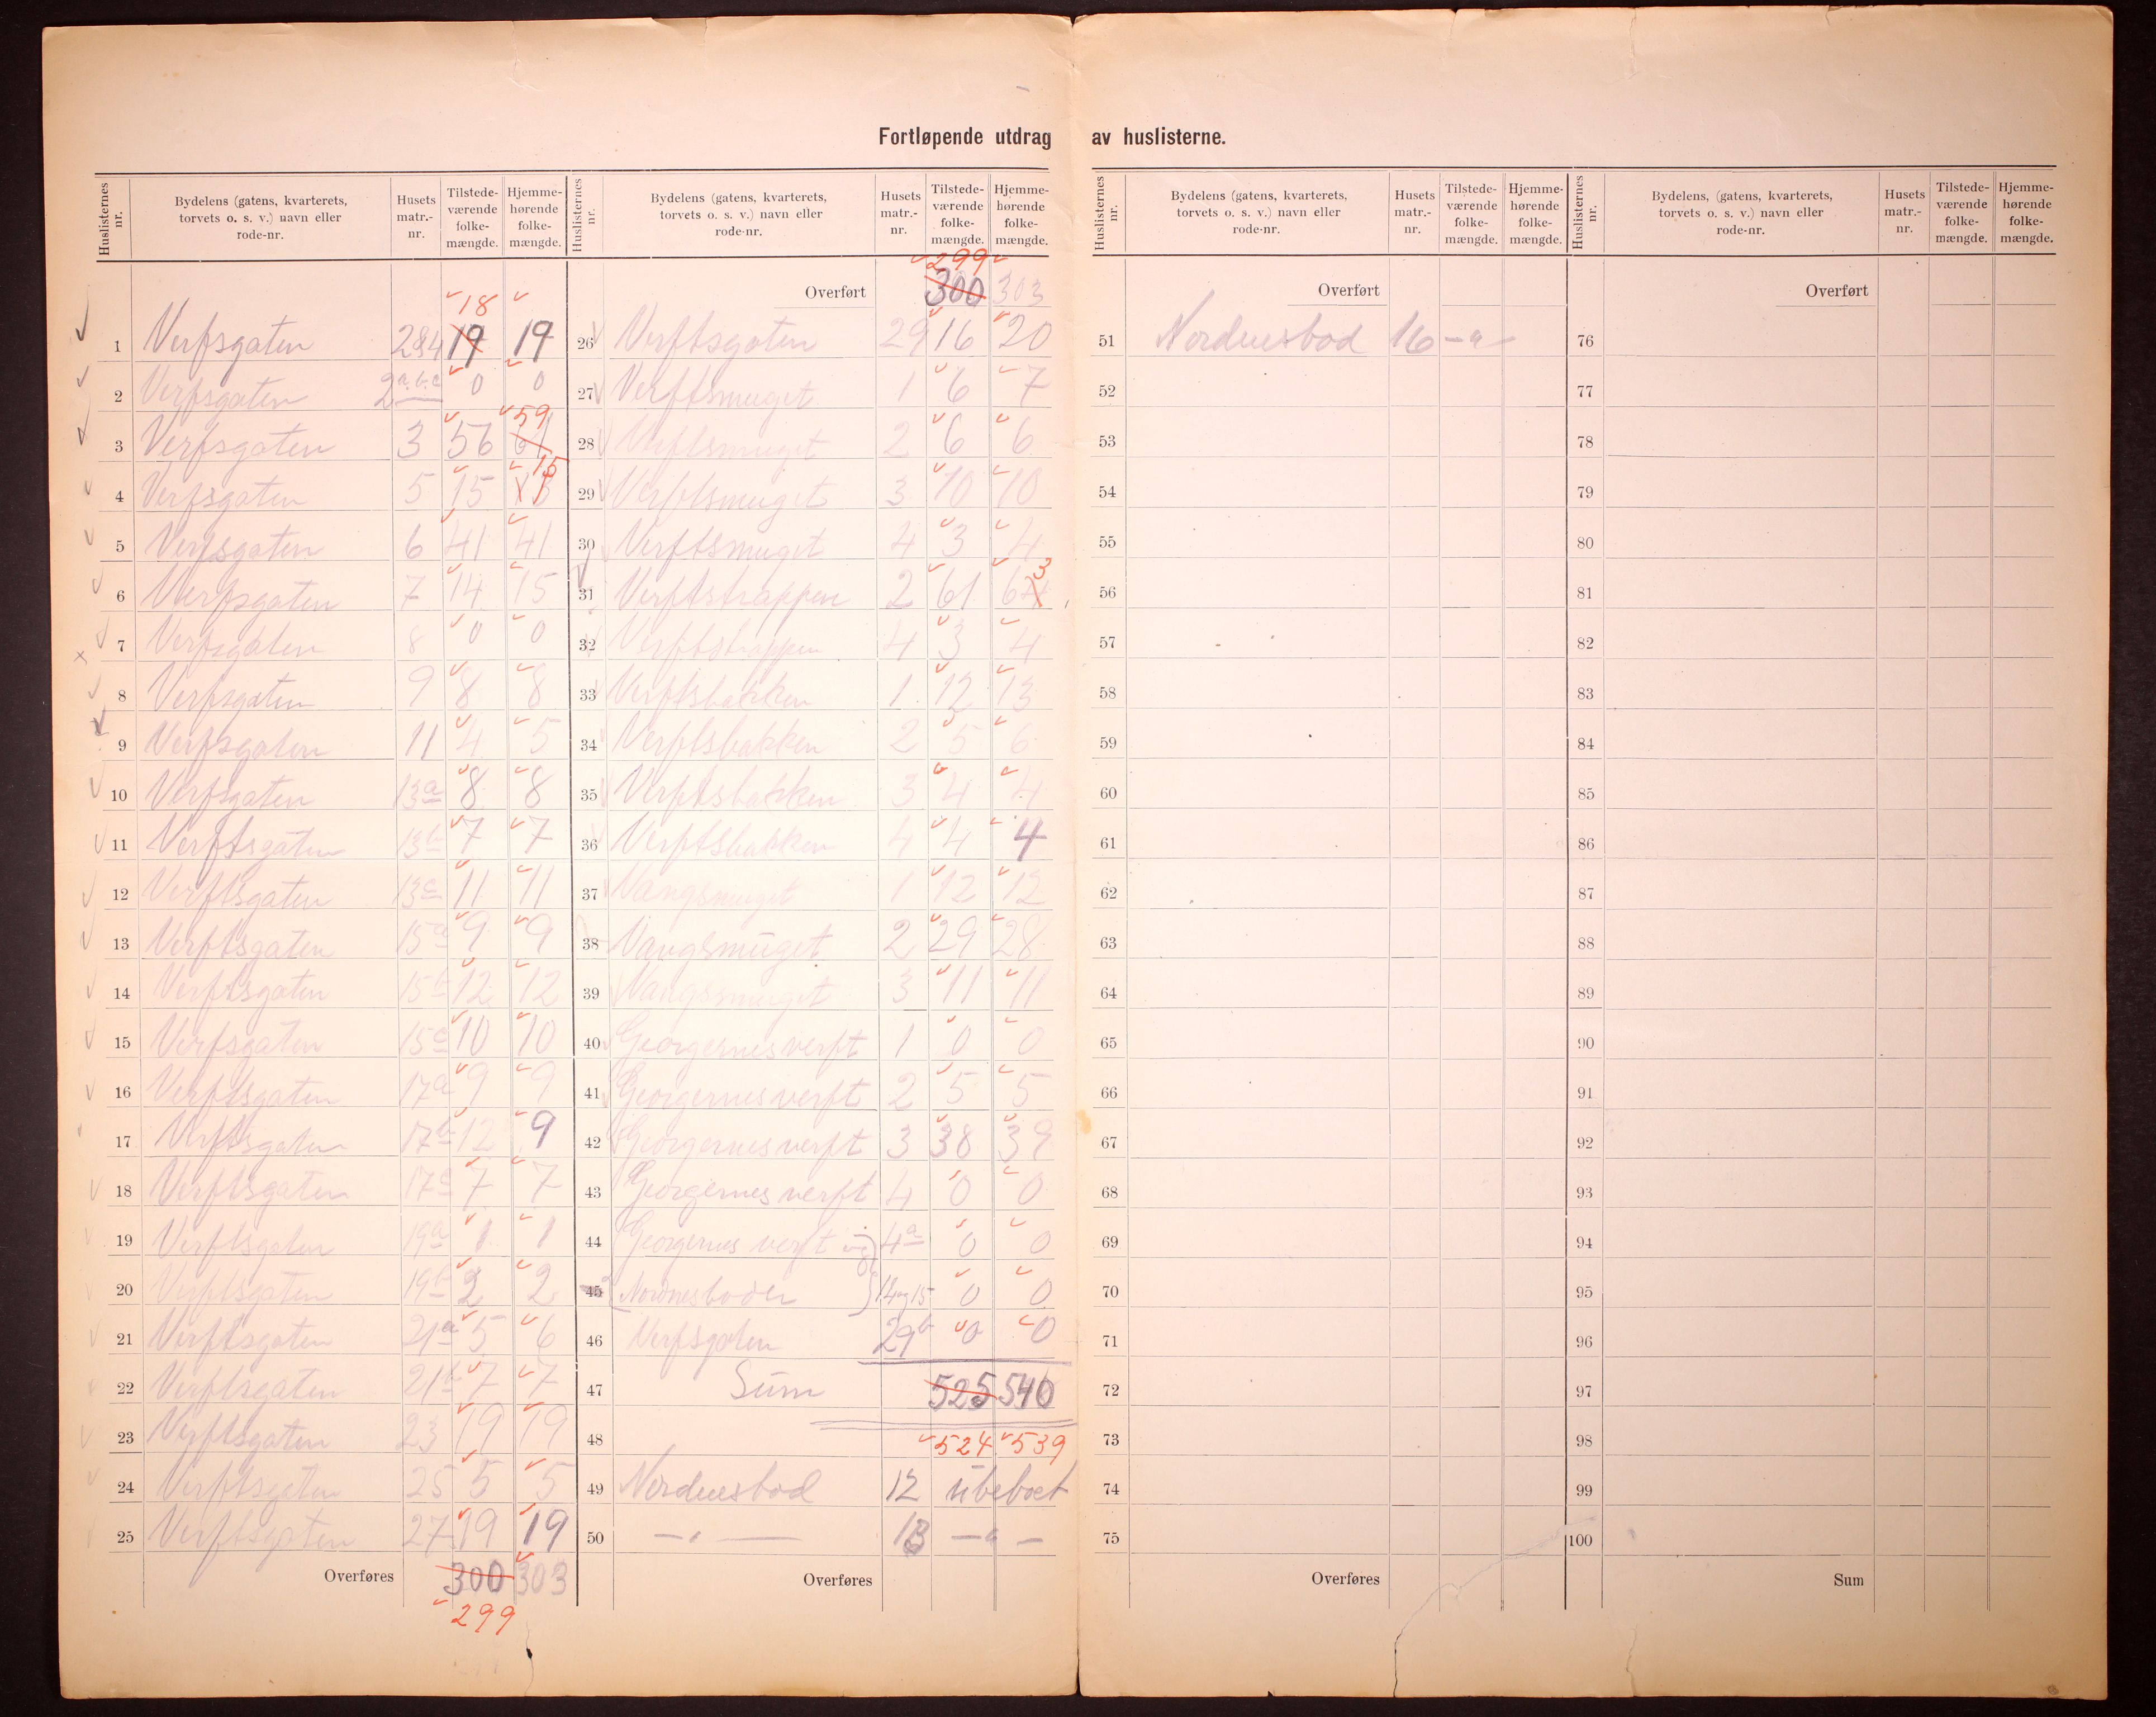 Fortløpende utdrag av huslisterne.
Huslisternes nr. Bydelens (gatens, kvarterets, torvets o. s. v.) navn eller rode-nr. Husets matr.-nr. Tilstede-værende folke-mængde. Hjemme-hørende folke-mængde.
18
1 Verfsgaten 17 19
2 Verfsgaten 2 a.b.c 0 0
59
3 Verfsgaten 3 56 61
15
4 Verfsgaten 5 15
5 Verfsgaten 6 41 41
6 Verfsgaten 7 14 15
7 Verfsgaten 8 0 0
8 Verfsgaten 9 8 8
9 Verfsgaten 11 4 5
10 Verfsgaten 13a 8 8
11 Verftsgaten 13b 7 7
12 Verftsgaten 13c 11 11
13 Verftsgaten 15a 9 9
14 Verftsgaten 15b 12 12
15 Verfsgaten 15c 10 10
16 Verftsgaten 17a 9 9
17 Verftsgaten 17b 12 9
18 Verftsgaten 17c 7 7
19 Verftsgaten 19a 1 1
20 Verftsgaten 19b 2 2
21 Verftsgaten 21a 5 6
22 Verftsgaten 21b 7 7
23 Verftsgaten 23 19 19
24 Verftsgaten 25 5 5
25 Verftsgaten 27 19 19
Overføres 300 303
299
Huslisternes nr. Bydelens (gatens, kvarterets, torvets o. s. v.) navn eller rode-nr. Husets matr.-nr. Tilstede-værende folke-mængde. Hjemme-hørende folke-mængde.
299
Overført 300 303
26 Verftsgaten 29 16 20
27 Verftsmuget 1 6 7
28 Verftsmuget 2 6 6
29 Verftsmuget 3 10 10
30 Verftsmuget 4 3 4
3
31 Verftstrappen 2 61 64
32 Verftstrappen 4 3 4
33 Verftsbakken 1 12 13
34 Verftsbakken 2 5 6
35 Verftsbakken 3 4 4
36 Verftsbakken 4 4 4
37 Vangsmuget 1 12 12
38 Vangsmuget 2 29 28
39 Vangsmuget 3 11 11
40 Georgernesverft 1 0 0
41 Georgernesverft 2 5 5
42 Georgernesverft 3 38 39
43 Georgernes verft 4 0 0
44 Georgernes verft og 4a 0 0
45 Nordnesboder 14 og 15 0 0
46 Verfsgaten 29b 0 0
47 Sum 525 540
48 524 539
49 Nordnesbod 12 ubeboet
50 — " — 13 — " —
Overføres
Huslisternes nr. Bydelens (gatens, kvarterets, torvets o. s. v.) navn eller rode-nr. Husets matr.-nr. Tilstede-værende folke-mængde. Hjemme-hørende folke-mængde.
Overført
51 Nordnesbod 16 — " —
52
53
54
55
56
57
58
59
60
61
62
63
64
65
66
67
68
69
70
71
72
73
74
75
Overføres
Huslisternes nr. Bydelens (gatens, kvarterets, torvets o. s. v.) navn eller rode-nr. Husets matr.-nr. Tilstede-værende folke-mængde. Hjemme-hørende folke-mængde.
Overført
76
77
78
79
80
81
82
83
84
85
86
87
88
89
90
91
92
93
94
95
96
97
98
99
100
Sum